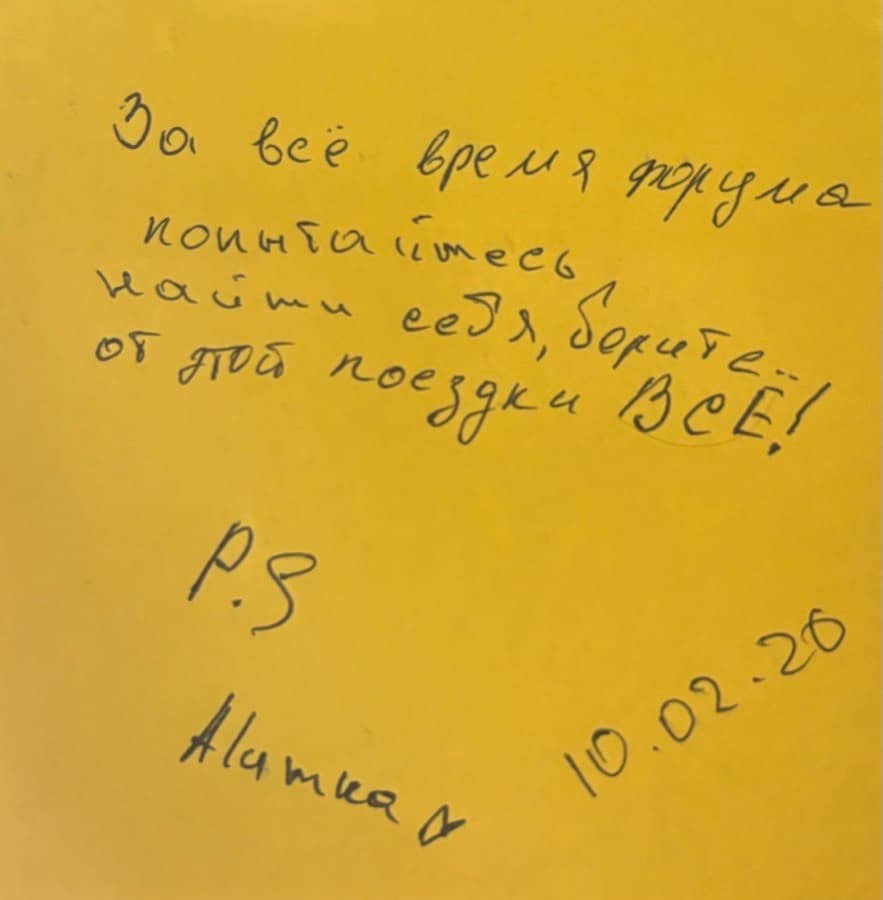 За всё время форума
попытайтесь
найти себя, берите..
от этой поездки ВСЁ!
P.S
10.02.20